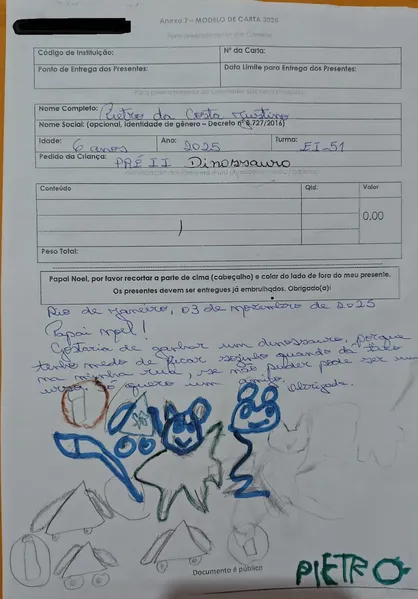 Anexo 7 – MODELO DE CARTA 2025
Código de Instituição: Nº da Carta:
Ponto de Entrega dos Presentes: Data Limite para Entrega dos Presentes:
Nome Completo: Pietro da Costa Justino
Nome Social: (opcional, identidade de gênero – Decreto nº 8.727/2016)
Idade: 6 anos Ano: 2025 Turma: EI-51
Pedido da Criança: PRÉ II Dinossauro
Conteúdo Qtd. Valor
0,00
Peso Total:
Papai Noel, por favor recortar a parte de cima (cabeçalho) e colar do lado de fora do meu presente.
Os presentes devem ser entregues já embrulhados. Obrigado(a)!
Rio de Janeiro, 03 de novembro de 2025
Papai Noel!
Gostaria de ganhar um dinossauro, porque
tenho medo de ficar sozinho quando dá tiro
na minha rua, se não puder pode ser um
urso. quero um amigo. Obrigada.
PIETRO
Documento é público